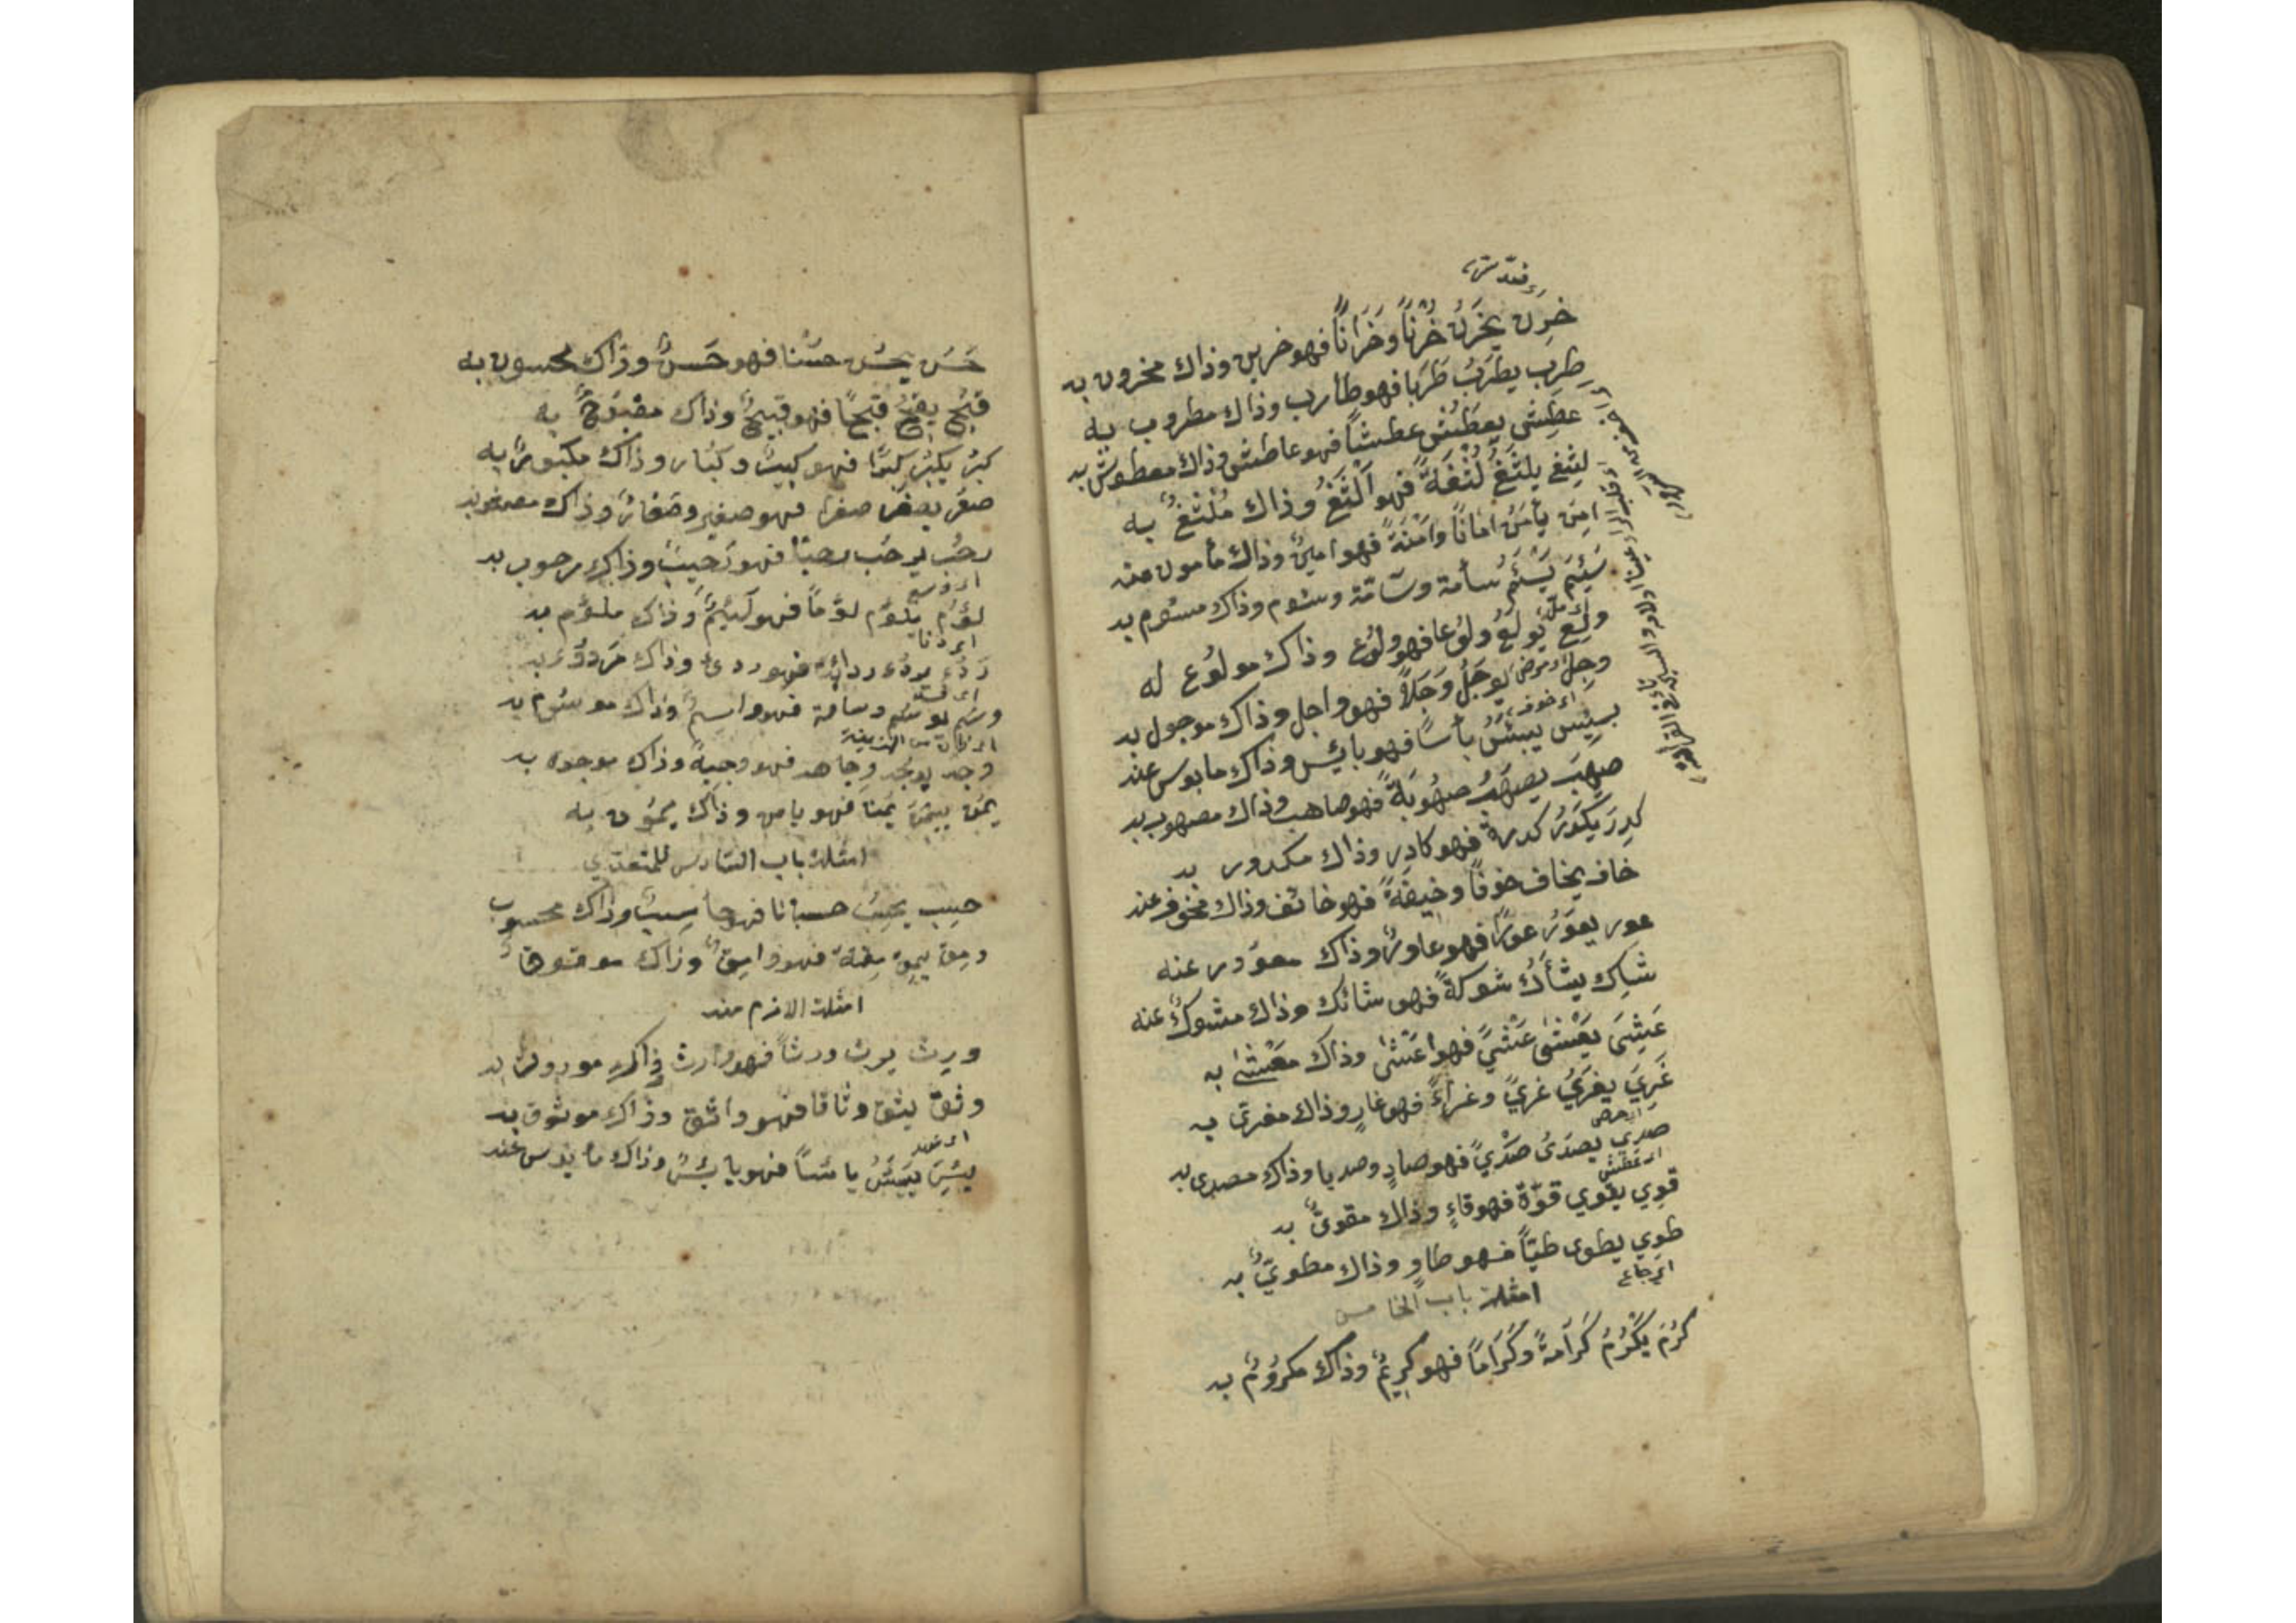 خَزِنَ يَخْزَنُ خُزْنًا وَخَزَانًا فهو خزين وذاك مخزون به
طِرِب يطرَبُ طَرَبا فهو طارب وذاك مطروب به
عطِش يعطَش عطشًا فهو عاطش وذاك معطوش به
لثِغ يلثَغُ لُثْغَةً فهو اَلْثَغُ وذاك مُلْثَغٌ به
امِن يأمَنُ امانًا وَامَنَةً فهو امينٌ وذاك مأمون منه
سَئِمَ يَسْئَمُ سأمة وسَآمَةً وسئوم وذاك مسئوم به
ولِعَ يَولَعُ ولُوعا فهو ولُوع وذاك مولُوع له
وجِل يوجَلُ وَجَلاً فهو واجل وذاك موجول به
اى خوف
بئِس يبئَسُ بأسًا فهو بائِس وذاك مابوس عنه
صهِبَ يصهَبُ صهُوبَةً فهو صاهب وذاك مصهوب به
كدِرَ يكدَرُ كدرةً فهو كادِر وذاك مكدور به
خاف يخاف خوفًا وخيفَةً فهو خائف وذاك مخوف عنه
عور يعوَرُ عورًا فهو عاورٌ وذاك معوور عنه
شاك يشاكُ شوكةً فهو شائك وذاك مشوكٌ عنه
عَشِيَ يَعْشىٰ عَشْيً فهو اعَشىٰ وذاك مَعْشىٰ به
غَرِيَ يغرَيُ غرىً وغراءً فهو غارٍ وذاك مغرىّ به
صدِي يصدَىُ صَدْيً فهو صادٍ وصديا وذاك مصدى به
اى عطش
قوِي يقوي قوّة فهو قاءٍ وذاك مقوىٌّ به
طوِي يطوى طيًّا فهو طاوٍ وذاك مطويٌّ به
اى جاع
امثلة باب الخامس
كَرُمَ يَكْرُمُ كَرَامةً وَكَرَامًا فهو كرِيمٌ وذاك مكرُومٌ به
حَسُنَ يحسُن حسْنا فهو حَسَنٌ وذاك محسون به
قبُح يقبُحُ قبْحًا فهو قبيحٌ وذاك مقبُوحٌ به
كبُرَ يكبُرُ كبرًا فهو كبيرٌ وكبار وذاك مكبورٌ به
صغُرَ يصغُرُ صغرا فهو صغير وصغارٌ وذاك مصغور به
رحُب يرحُب رحبًا فهو رَحِيبٌ وذاك مرحوب به
اى وسع
لؤُم يلؤُم لؤمًا فهو لَئِيمٌ وذاك ملئوم به
اى دنا
رَدُءَ يردُءُ رداءة فهو ردىء وذاك مَردوُء به
وسُم يوسُم وسامة فهو واسِمٌ وذاك موسُوم به
وجُه يوجُه وجاهة فهو وجيهٌ وذاك موجوه به
يمُن ييمُن يُمنا فهو يامن وذاك ميمُون به
امثلة باب السّادس للمتعدّي
حسِب يحسِبُ حسبانا فهو حاسِبٌ وذاك محسوب
ومِق يمِق مِقَةً فهو وامِقٌ وذاك موموقا
امثلة الازم منه
ورِث يرث ورثاً فهو وارث وذاك موروث به
وثِق يثق وثاقا فهو واثق وذاك موثوق به
يئِسَ ييئَسُ يائسًا فهو يائِسٌ وذاك مايوس عنه